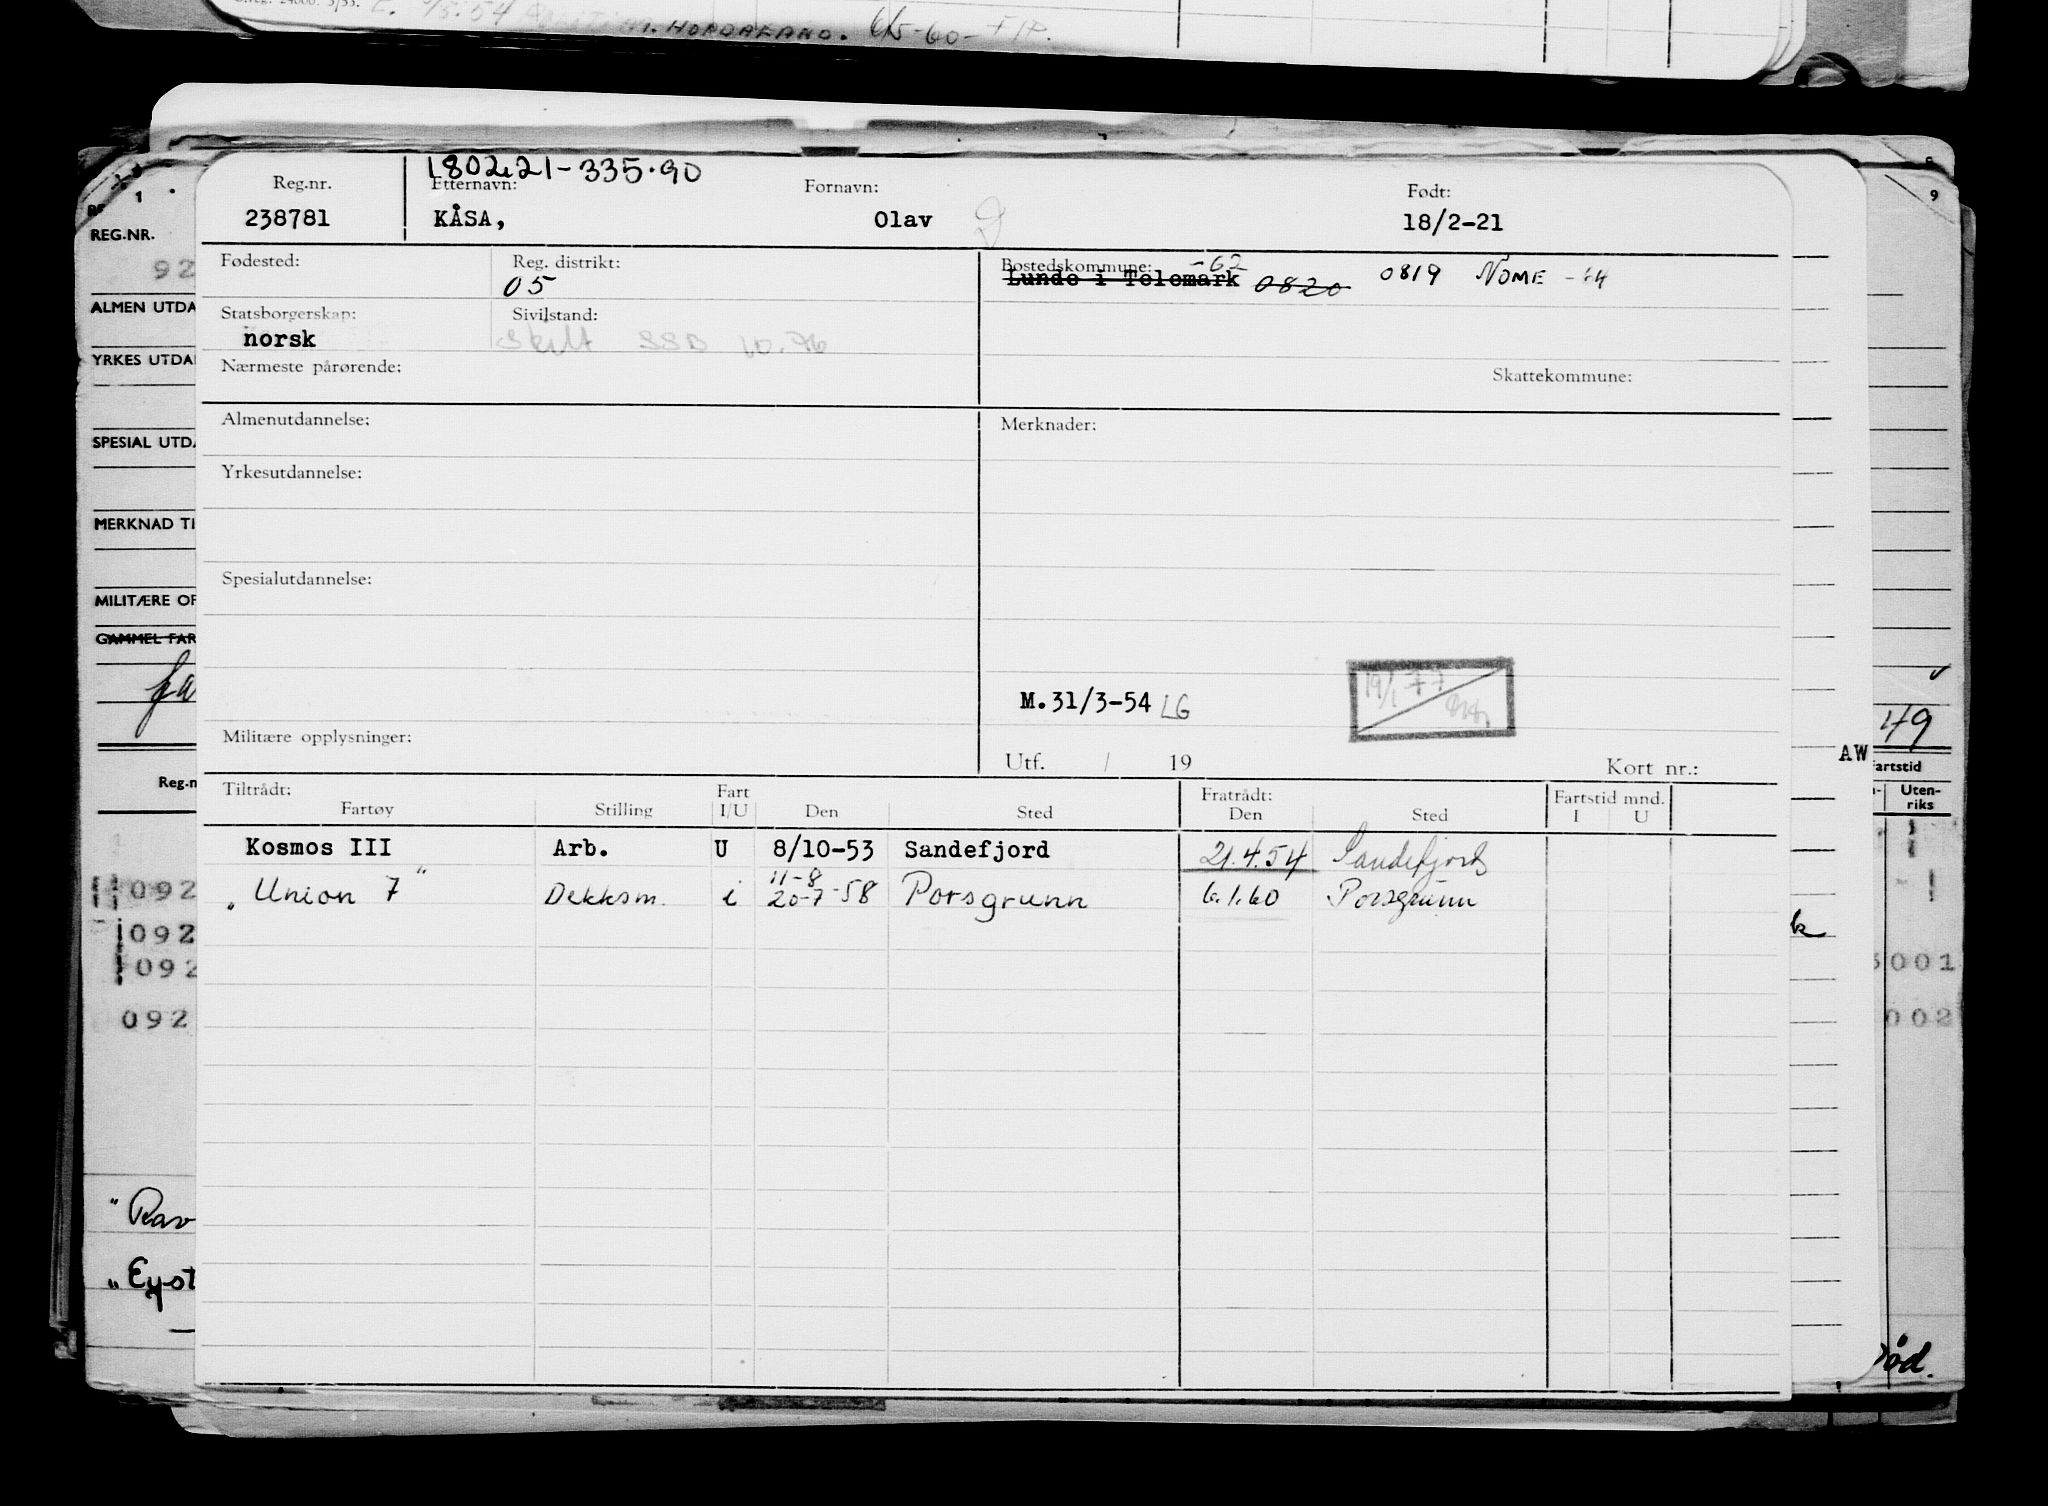 M. HORDALAND. 6/5-60-
180221-335.90
Reg.nr. Etternavn: Fornavn: Født:
238781 KÅSA, Olav 18/2-21
Fødested: Reg. distrikt: Bostedskommune: -62
05 Lunde i Telemark 0820 0819 NOME -64
Statsborgerskap: Sivilstand:
norsk Skilt SSD 10.76
Nærmeste pårørende: Skattekommune:
Almenutdannelse: Merknader:
Yrkesutdannelse:
Spesialutdannelse:
M.31/3-54 LG 19/1 77
Militære opplysninger:
Utf. / 19 Kort nr.:
Tiltrådt: Fart Fratrådt: Fartstid mnd.
Fartøy Stilling I/U Den Sted Den Sted I U
Kosmos III Arb. U 8/10-53 Sandefjord 21.4.54 Sandefjord
11-8
„Union 7" Dekksm. i 20-7-58 Porsgrunn 6.1.60 Porsgrunn
1
REG.NR.
92
ALMEN UTDA
YRKES UTDA
SPESIAL UTDA
MERKNAD TI
MILITÆRE OP
GAMMEL FAR
Reg.n
092
092
092
092
"Rav
„Eyst
9
49
AW
artstid
Uten-
riks
001
002
ød.